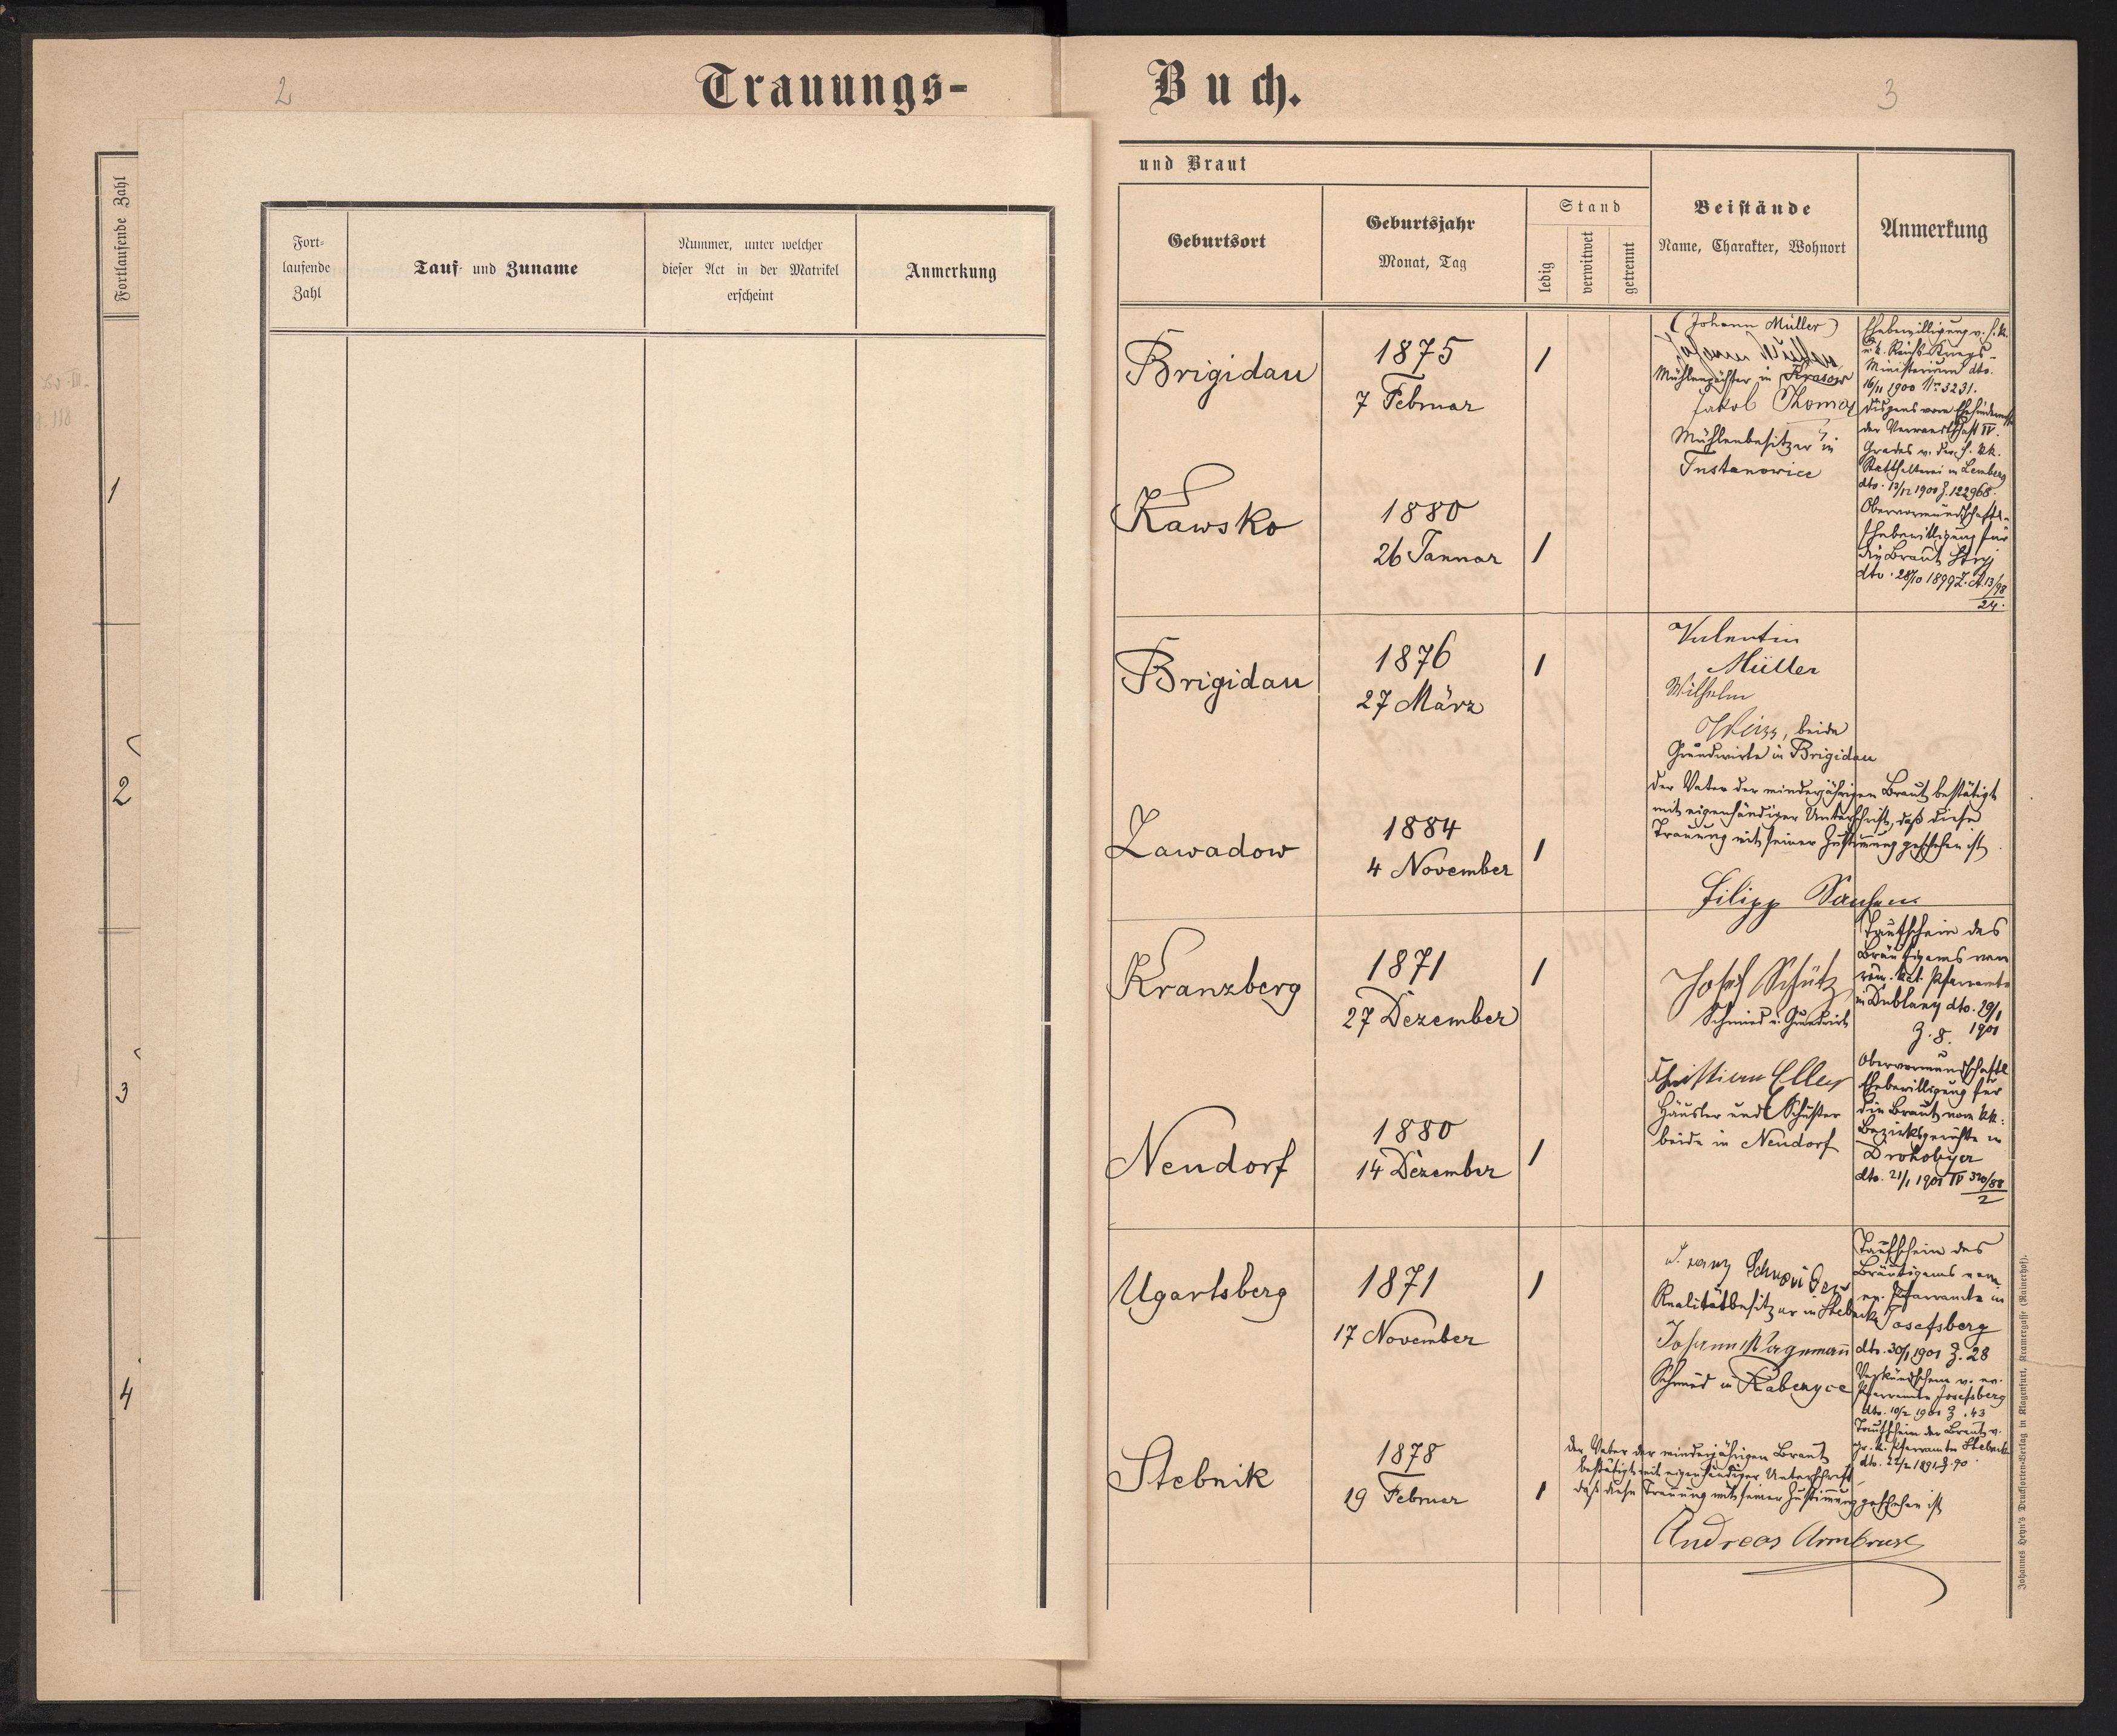 2
Trauungs-
Buch.
3
Fortlaufende Zahl
1
2
3
4
Fort-
laufende
Zahl
Tauf- und Zuname
Nummer, unter welcher
dieser Act in der Matrikel
erscheint
Anmerkung
und Braut
Geburtsort
Geburtsjahr
Monat, Tag
Stand
ledig
verwitwet
getrennt
Beistände
Name, Charakter, Wohnort
Anmerkung
Brigidau
1875
7 Februar
/
(Johann Müller)
Johann Müller
Mühlenpächter in Krasow
Jakob Thomas
Mühlenbesitzer in
Tustanowice
Ehebewilligung v. h. k.
u. k. Reichs-Kriegs-
Ministerium dto.
16/11 1900 Nr. 3231.
Dispens vom Ehehindernisse
der Verwandtschaft IV.
Grades v. der h. kk.
Statthalterei in Lemberg
dto. 13/12 1900 Z. 122968.
Kawsko
1880
26 Januar
/
Obervormundschaftl.
Ehebewilligung für
die Braut Stryj
dto. 28/10 1899 Z. A 13/98
24.
Brigidau
1876
27 März
/
Valentin
Müller
Wilhelm
beide
Grundwirte in Brigidau
Zawadow
1884
4 November
/
Der Vater der minderjährigen Braut bestätigt
mit eigenhändiger Unterschrift, daß diese
Trauung mit seiner Zustimmung geschehen ist.
Filipp
Kranzberg
1871
27 Dezember
/
Josef Schütz
Schmied u. Grundwirt
Taufschein des
Bräutigams vom
röm. kat. Pfarramte
in Dublany dto. 29/1
Z. 8. 1901
Neudorf
1880
14 Dezember
/
Christian Eller
Häusler und Schuster
beide in Neudorf
Obervormundschaftl.
Ehebewilligung für
die Braut vom kk.
Bezirksgerichte in
Drohobycz
dto. 21/1 1901 IV 320/88
2
Ugartsberg
1871
17 November
/
Franz Schneider
Realitätbesitzer in Stebnik
Johann Wagemann
Schmied in
Taufschein des
Bräutigams vom
ev. Pfarramte in
Josefsberg
dto. 30/1 1901 Z. 28
Verkündschein v. ev.
Pfarramte Josefsberg
dto. 10/2 1901 Z. 43
Taufschein der Braut v.
gr. k. Pfarramte Stebnik
dto. 22/2 1891 Z. 90.
Stebnik
1878
19 Februar
/
Der Vater der minderjährigen Braut
bestätigt mit eigenhändiger Unterschrift
daß diese Trauung mit seiner Zustimmung geschehen ist
Andreas Armbrust
Johannes Heyn's Drucksorten-Verlag in Klagenfurt, Kramergasse (Rainerhof).